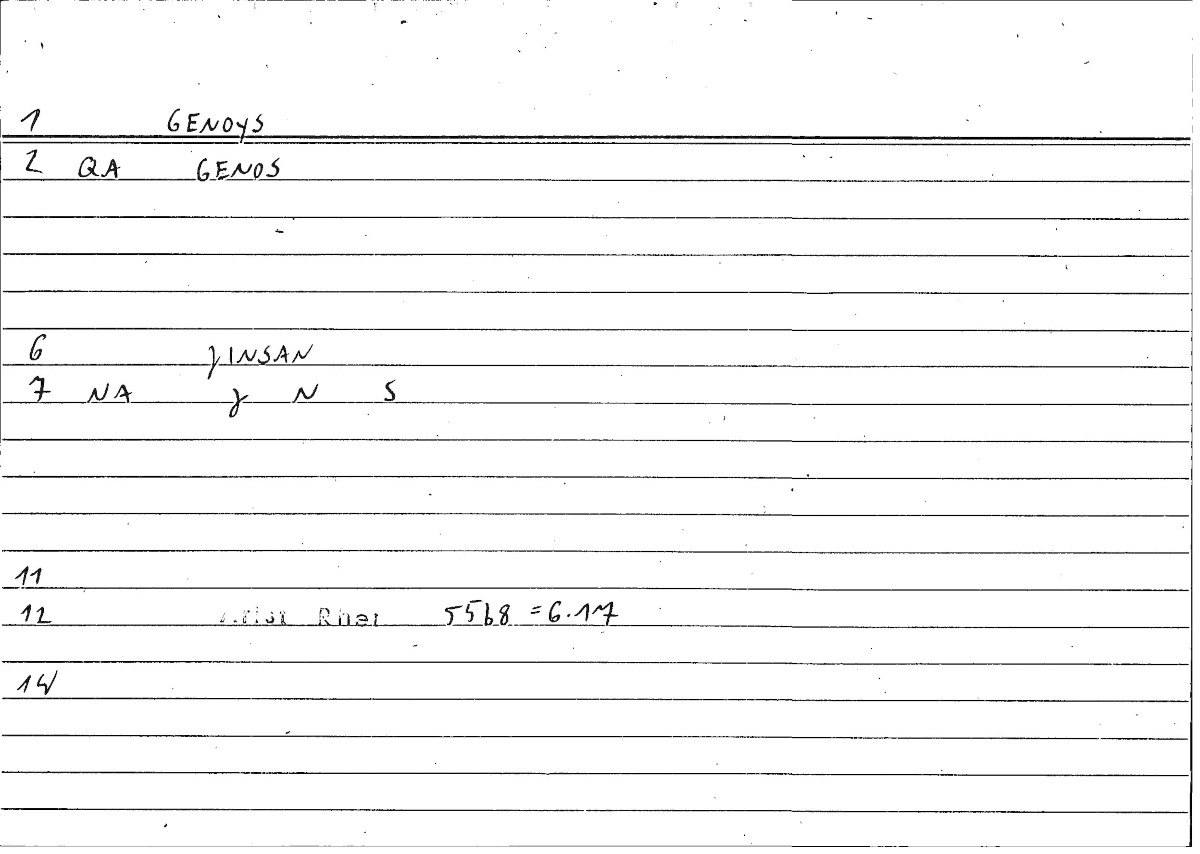 1 GENOYS
2 QA GENOS
6 ɣINSAN
7 NA ɣ N S
11
12 Arist Rhet 55b8 = 6.17
14